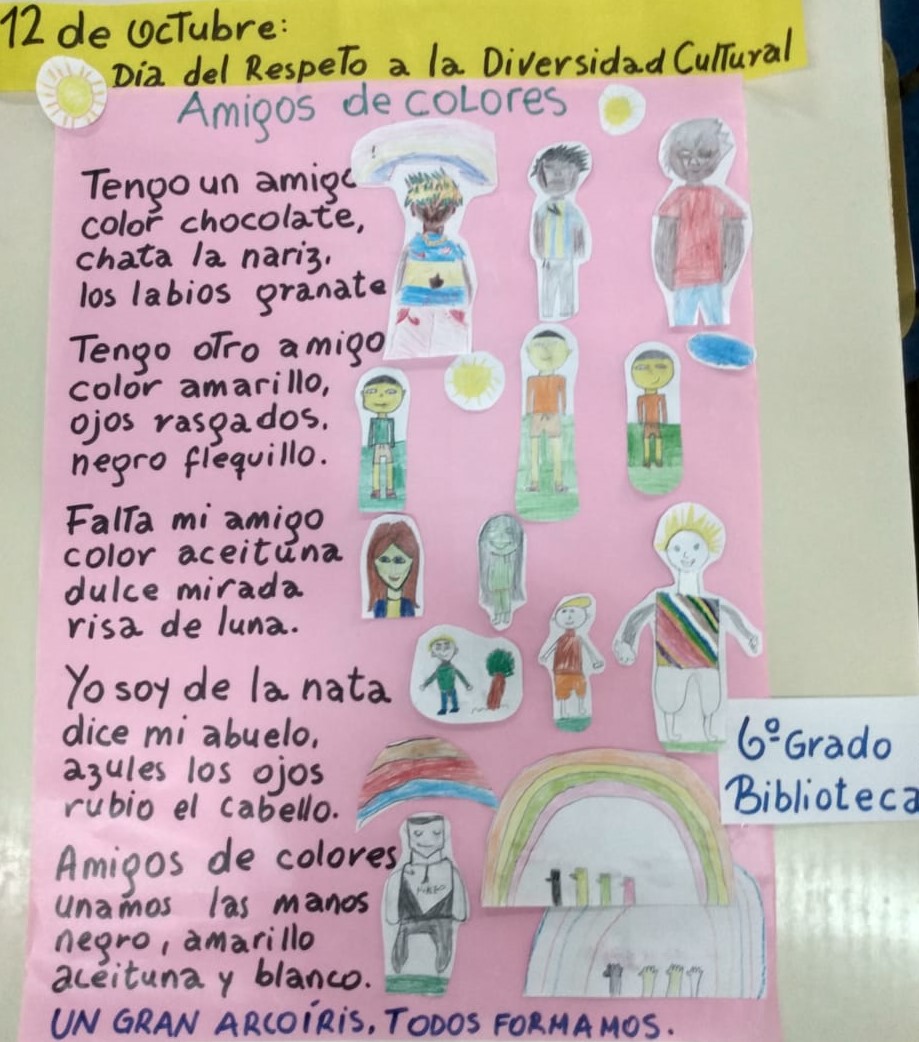 12 de Octubre:
Día del Respeto a la Diversidad Cultural
Amigos de colores
Tengo un amigo
color chocolate,
chata la nariz.
los labios granate
Tengo otro amigo
color amarillo,
ojos rasgados.
negro flequillo.
Falta mi amigo
color aceituna
dulce mirada
risa de luna.
Yo soy de la nata
dice mi abuelo,
azules los ojos
rubio el cabello.
Amigos de colores
unamos las manos
negro, amarillo
aceituna y blanco.
UN GRAN ARCOÍRIS. TODOS FORMAMOS.
6º Grado
Biblioteca